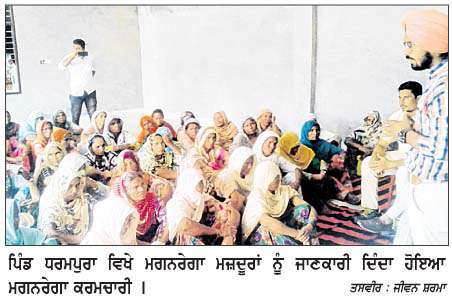 ਪਿੰਡ ਧਰਮਪੁਰਾ ਵਿਖੇ ਮਗਨਰੇਗਾ ਮਜ਼ਦੂਰਾਂ ਨੂੰ ਜਾਣਕਾਰੀ ਦਿੰਦਾ ਹੋਇਆ
ਮਗਨਰੇਗਾ ਕਰਮਚਾਰੀ । ਤਸਵੀਰ : ਜੀਵਨ ਸ਼ਰਮਾ